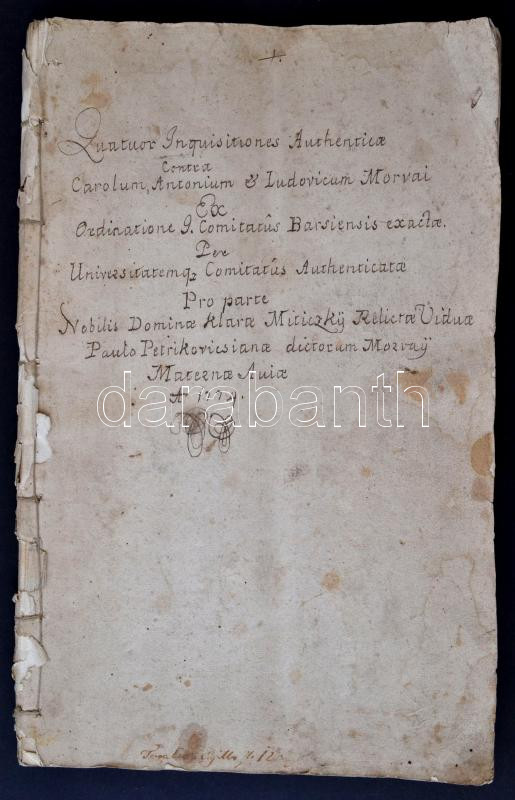 Quatuor Inquisitiones Authenticæ
Contra
Carolum, Antonium & Ludovicum Morvai
Ex
Ordinatione I. Comitatûs Barsiensis exactæ.
Per
Universitatemq₃ Comitatûs Authenticatæ
Pro parte
Nobilis Dominæ Klaræ Miticzkÿ Relictæ Viduæ
Paulo Petrikovicsianæ dictorum Morvaÿ
Maternæ Aviæ
darabanth